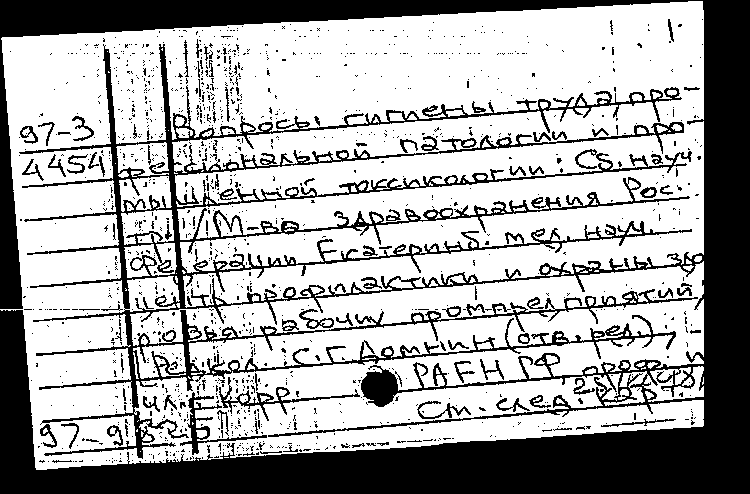 1.
97-3 Вопросы гигиены труда, про-
4454 фессиональной патологии и про-
мышленной токсикологии: Сб. науч.
тр. / М-во здравоохранения Рос.
Федерации, Екатеринб. мед. науч.
центр профилактики и охраны здо
ровья рабочих промпредприятий;
[Редкол.: С.Г. Домнин (отв. ред.),
чл.-корр. РАЕН РФ, проф. и
97-9 Ст. след. карт.